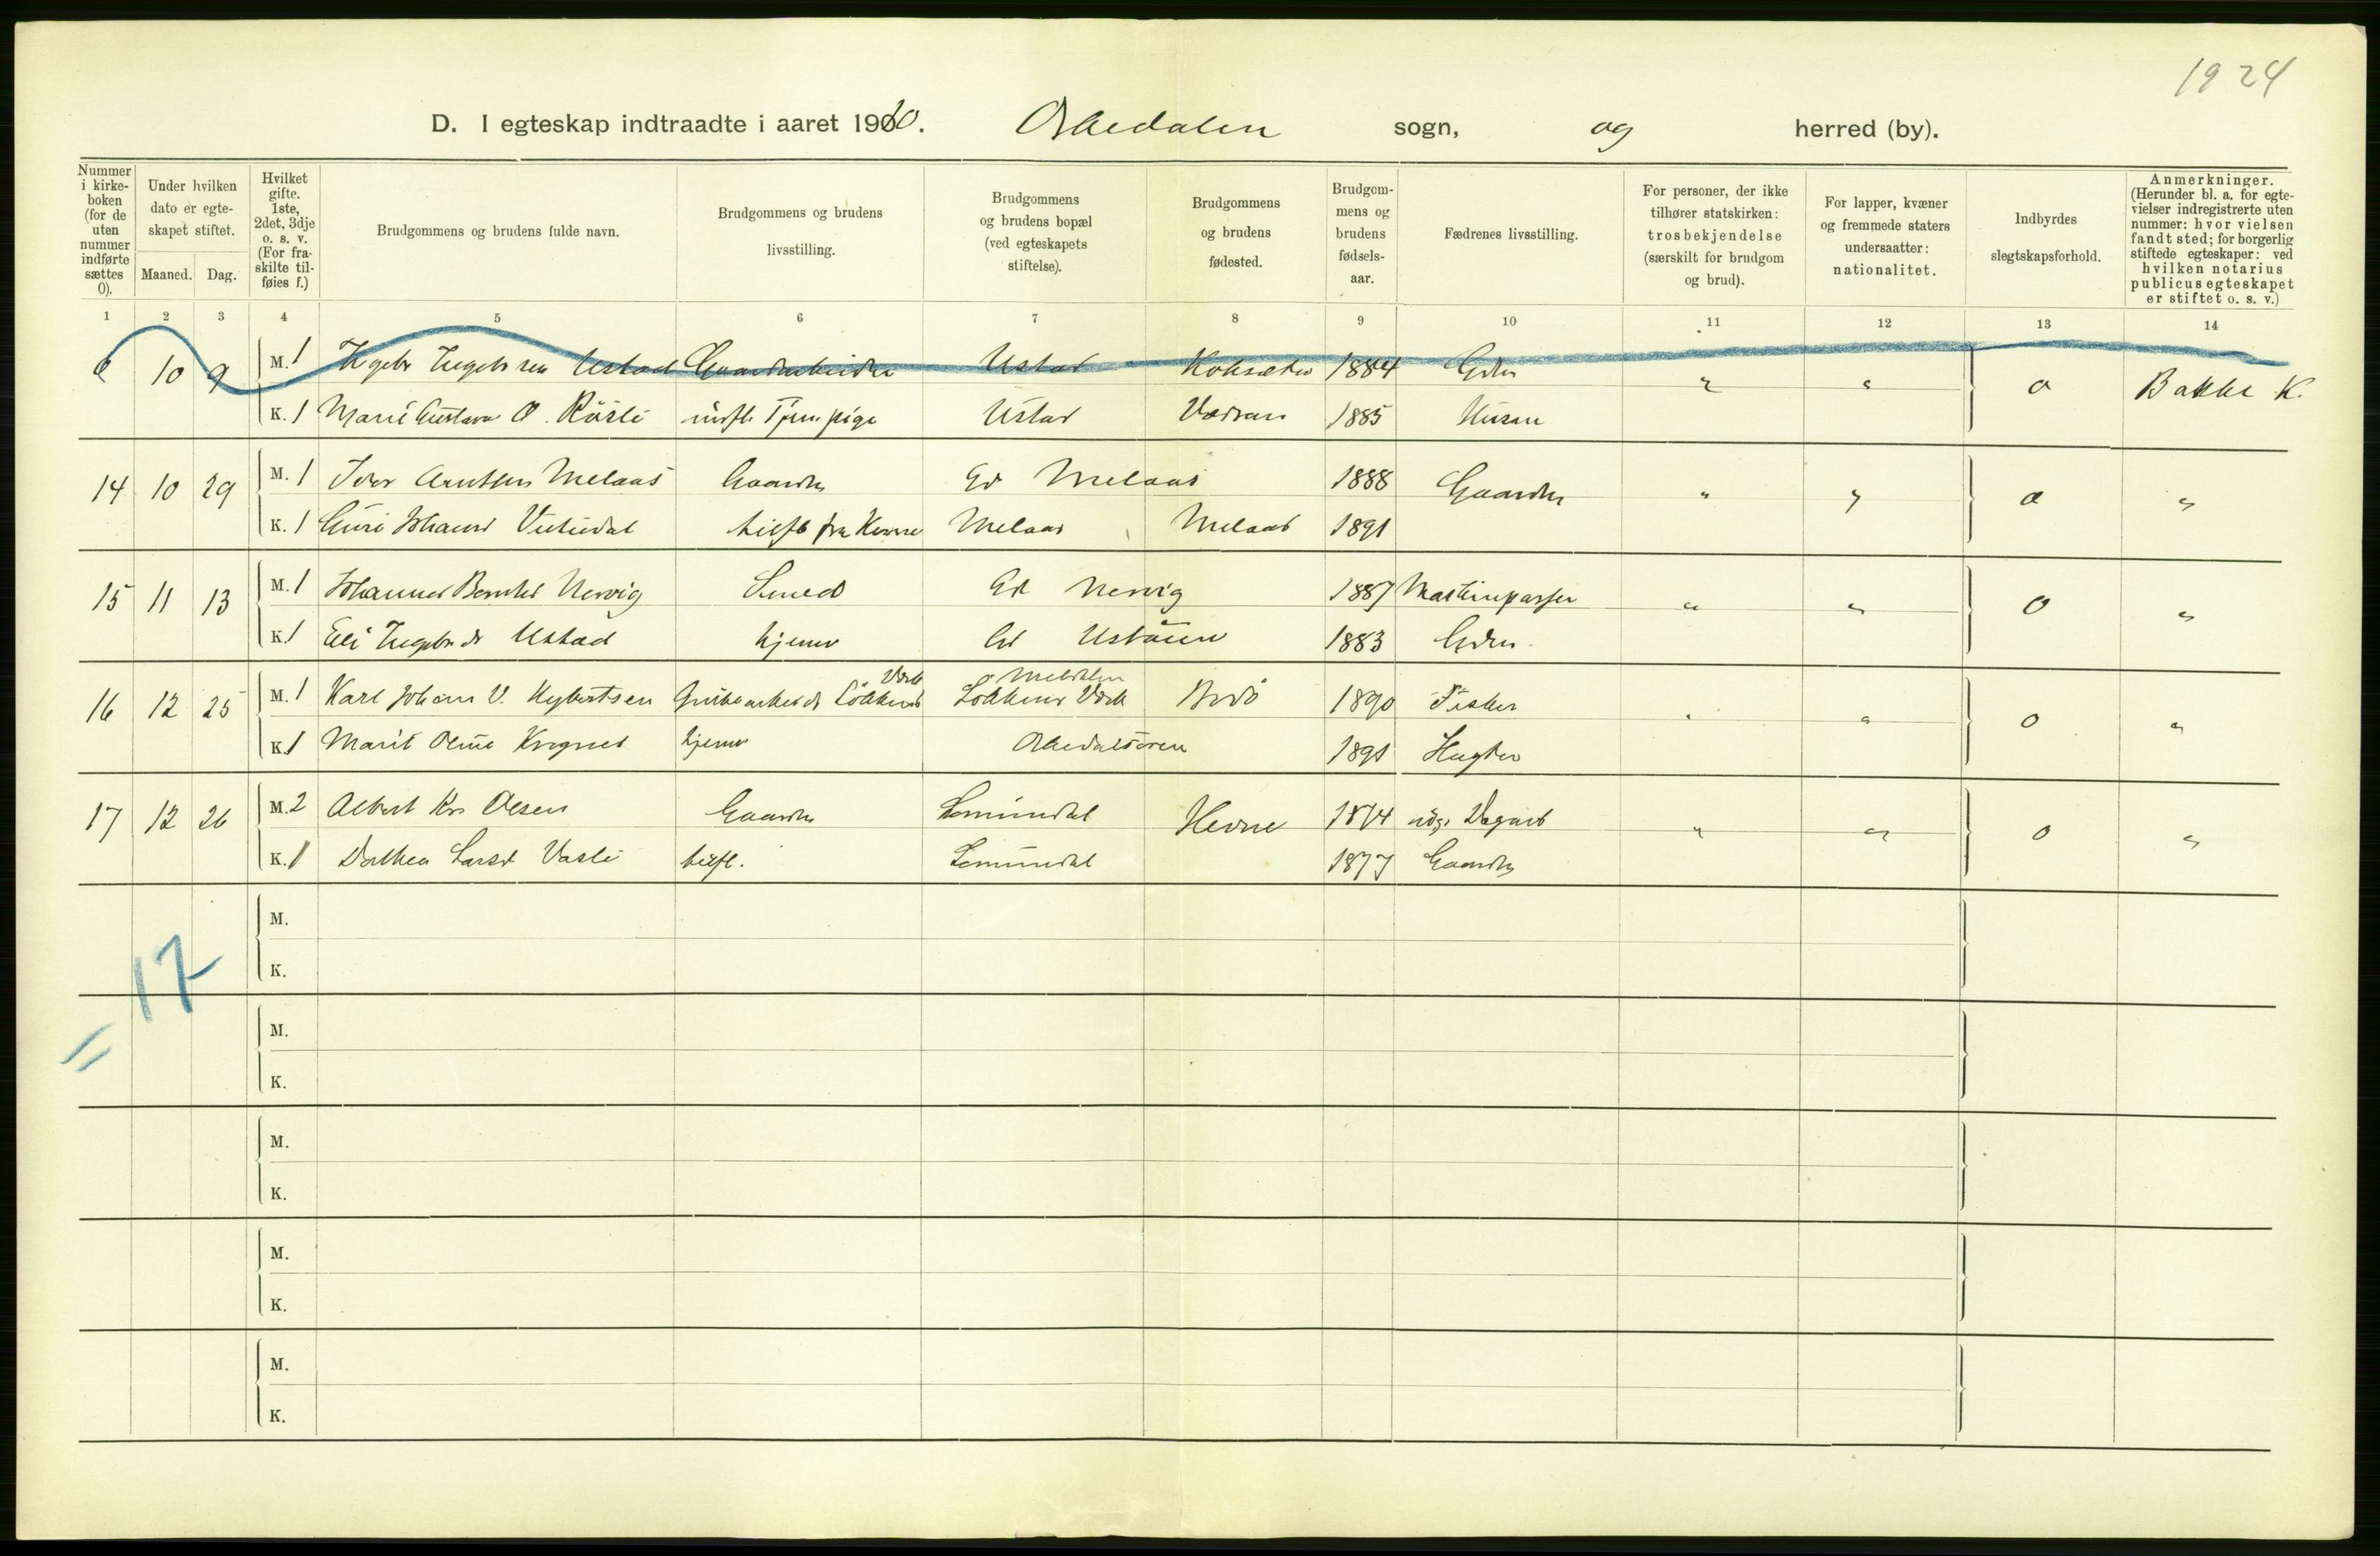 1924
D. I egteskap indtraadte i aaret 1910. Orkedalen sogn, og herred (by).
Nummer i kirkeboken (for de uten nummer indførte sættes 0).
Under hvilken dato er egteskapet stiftet.
Maaned. Dag.
Hvilket gifte. 1ste, 2det, 3dje o. s. v. (For fraskilte tilføies f.)
Brudgommens og brudens fulde navn.
Brudgommens og brudens livsstilling.
Brudgommens og brudens bopæl (ved egteskapets stiftelse).
Brudgommens og brudens fødested.
Brudgommens og brudens fødselsaar.
Fædrenes livsstilling.
For personer, der ikke tilhører statskirken: trosbekjendelse (særskilt for brudgom og brud).
For lapper, kvæner og fremmede staters undersaatter: nationalitet.
Indbyrdes slegtskapsforhold.
Anmerkninger. (Herunder bl. a. for egtevielser indregistrerte uten nummer: hvor vielsen fandt sted; for borgerlig stiftede egteskaper: ved hvilken notarius publicus egteskapet er stiftet o. s. v.)
1 2 3 4 5 6 7 8 9 10 11 12 13 14
0 10 9 M. 1 Ingebr Ingebrsen Ustad Gaardarbeider Ustad 1884 Gdr " " 0 Bakke K.
K. 1 Marie Gustava O. Rösli Ustad 1885 Husm
14 10 29 M. 1 Iver Arntsen Melaas Gaardbr Gd Melaas 1888 Gaardbr " " 0 "
K. 1 Guri Johansd Melaas Melaas 1891
15 11 13 M. 1 Johannes Nervig Smed Gd Nervig 1887 " " 0 "
K. 1 Eli Ingebrd Ustad hjemv Gd 1883 Gdr
16 12 25 M. 1 Karl Johan V. Grubearbeid Løkkens Værk Løkkens Værk Meldalen 1890 Fisker " " 0 "
K. 1 Marit hjemv Orkedalsøren 1891
17 12 26 M. 2 Albert Kr. Olsen Gaardbr Lomundal Hevne 1874 " " 0 "
K. 1 Dorthea Larsd Vasli Lomundal 1877 Gaardbr
M.
K.
= 17
M.
K.
M.
K.
M.
K.
M.
K.